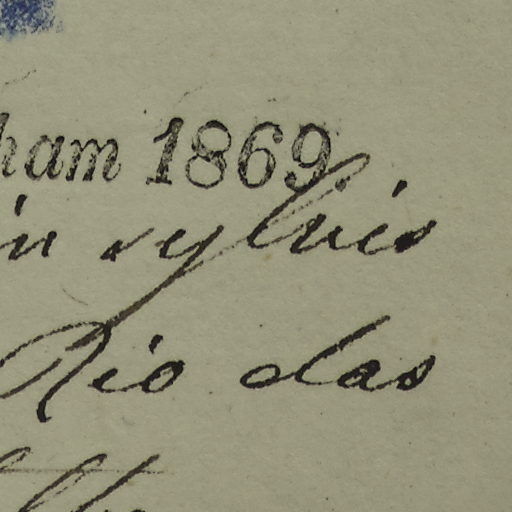 ham 1869.
in sylvis
Rio das